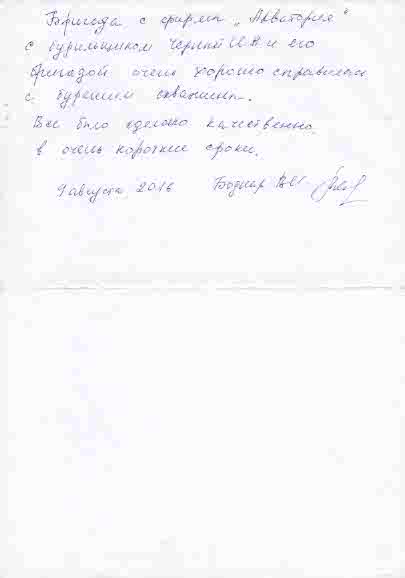 Бригада с фирмы „Акватория"
с бурильщиком Черный И.А и его
бригадой очень хорошо справилась
с бурением скважины.
Все было сделано качественно
в очень короткие сроки.
9 августа 2016 Боднар В.И.